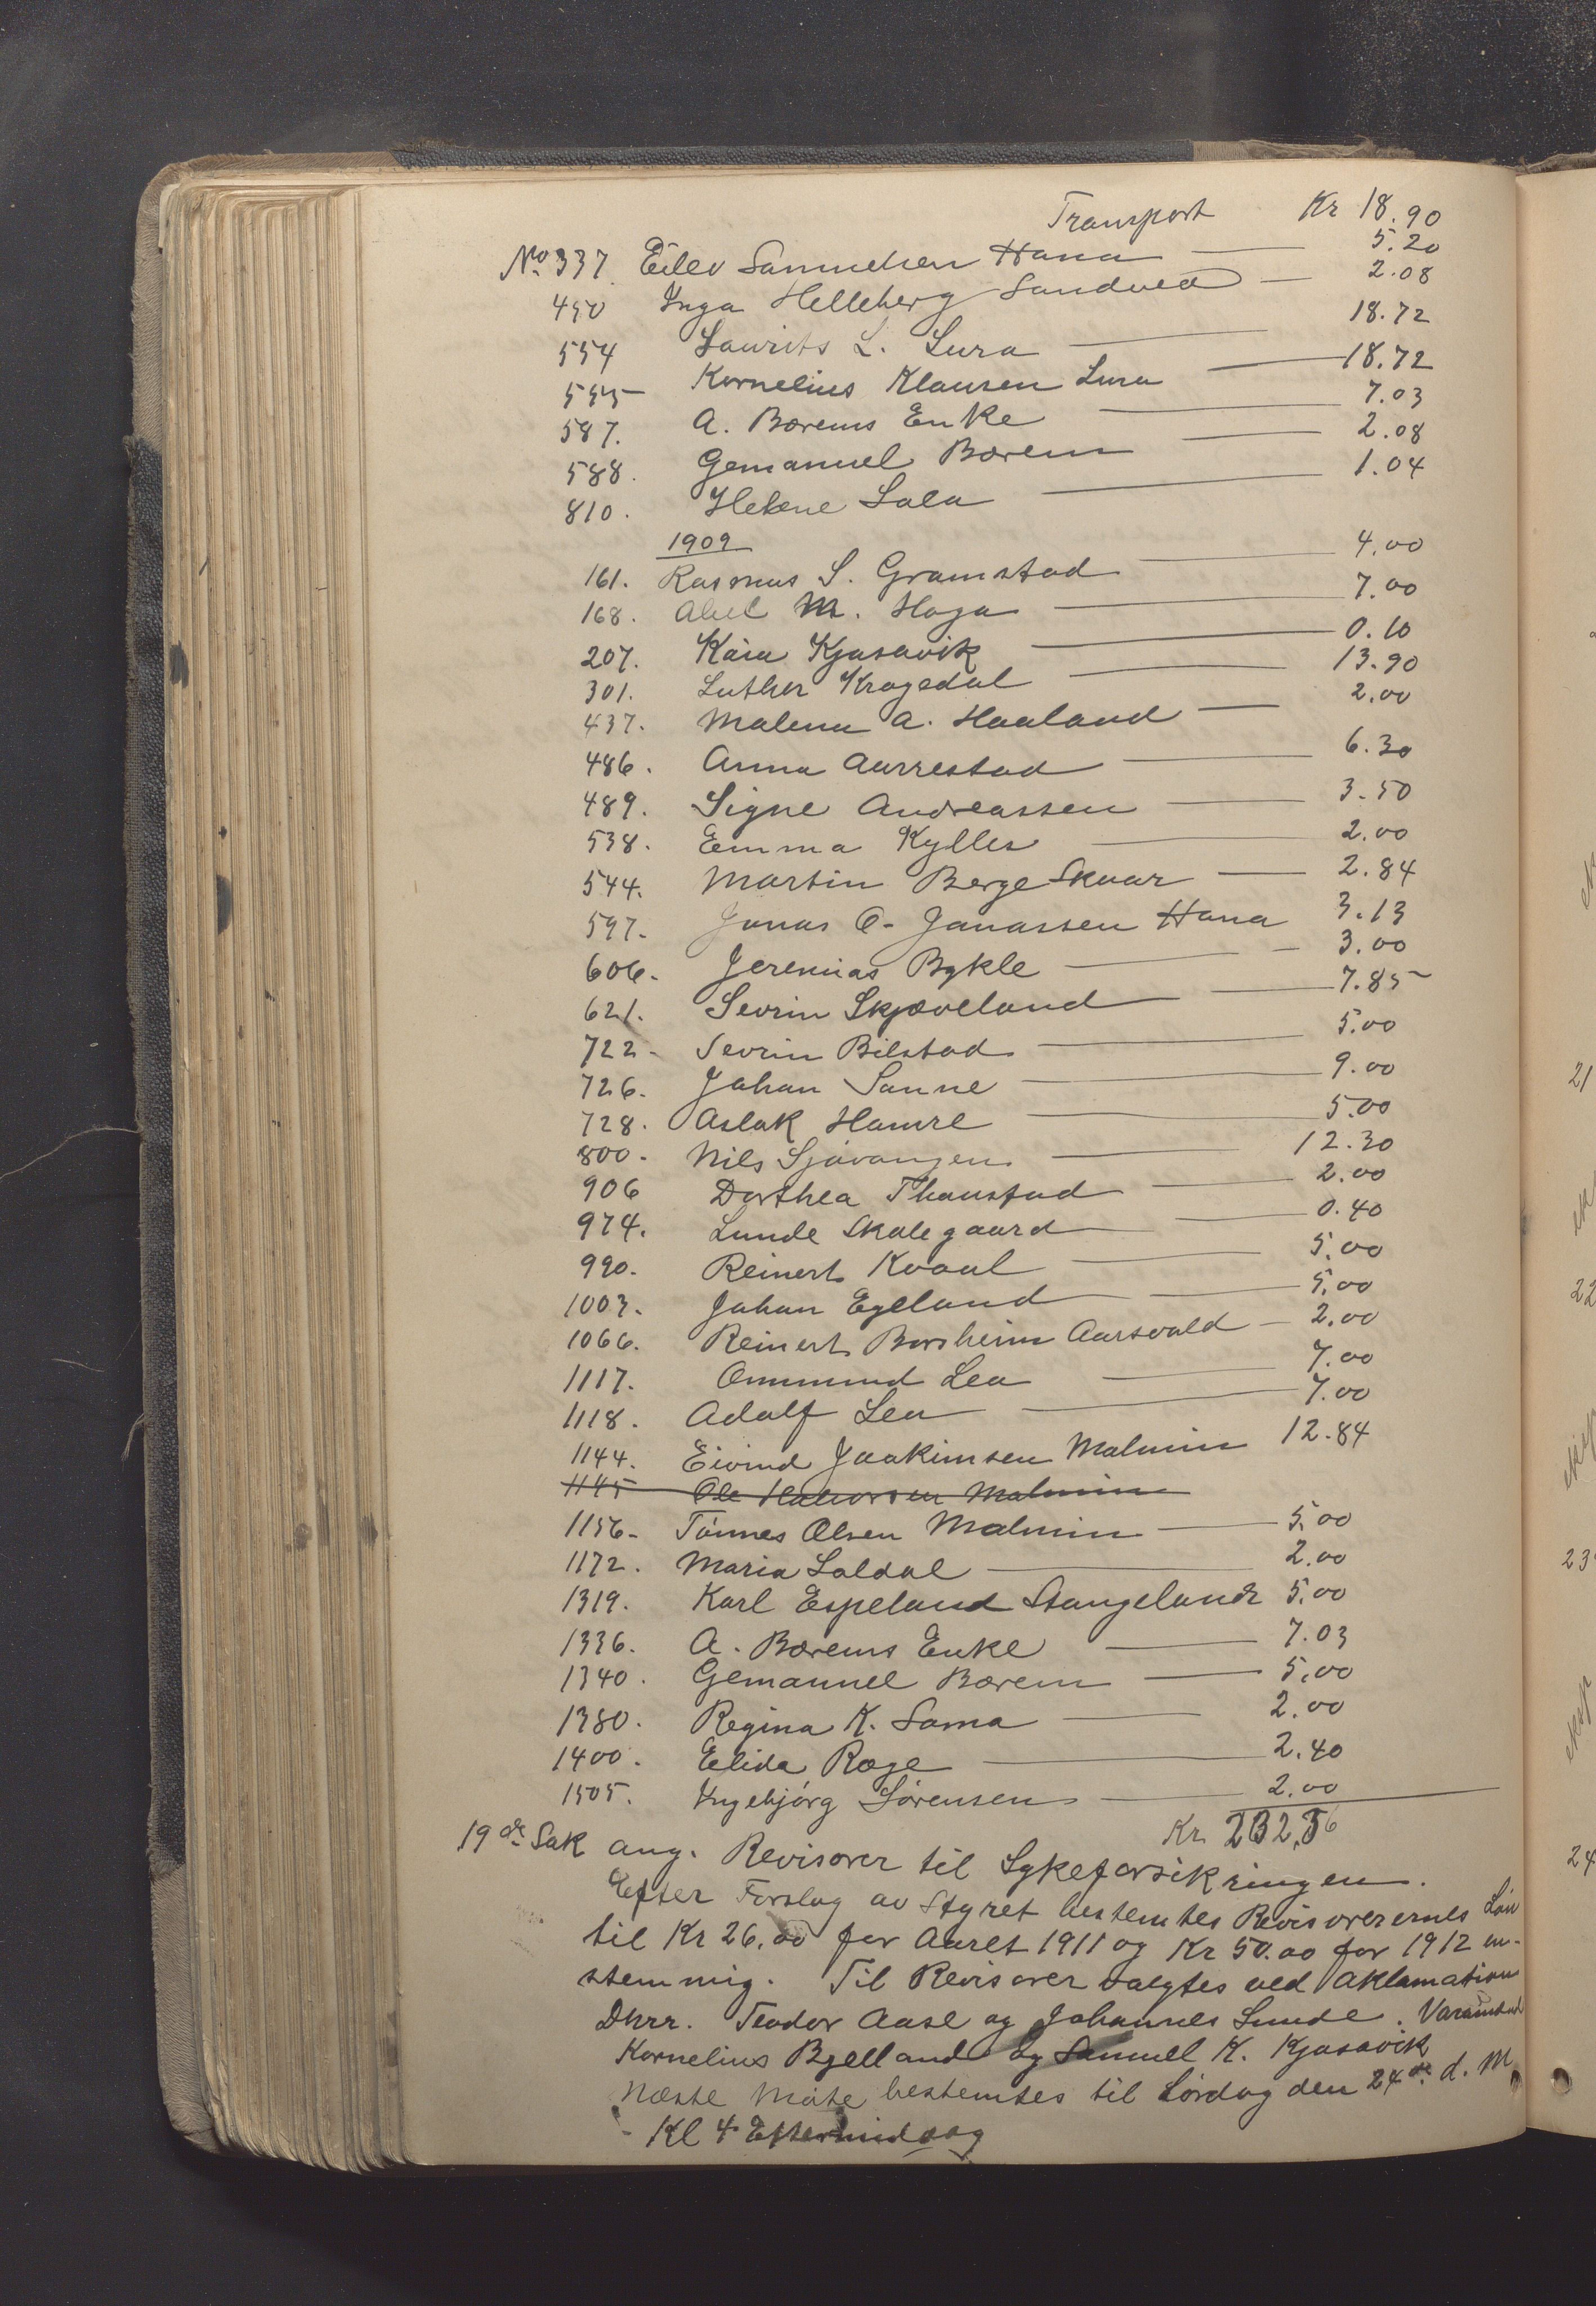 Transport Kr 18.90
No 337. Eilev Samuelsen Hana 5.20
450 Inga Helleberg Sandved 2.08
554 Laurits L. Lura 18.72
555 Kornelius Klausen Lura 18.72
587. A. Bærems Enke 7.03
588. Gemanuel Bærem 2.08
810. Helene Lala 1.04
1909
161. Rasmus S. Gramstad 4.00
168. Abel M. Haga 7.00
207. Kaia Kjosavik 0.10
301. Luther Kragedal 13.90
437. Malena A. Haaland 2.00
486. Anna Aarrestad 6.30
489. Signe Andreassen 3.50
538. Emma Kylles 2.00
544. Martin Berge Skaar 2.84
597. Jonas O. Jonassen Hana 3.13
606. Jeremias Bykle 3.00
621. Sevrin Skjæveland 7.85
722. Sevrin Bilstad 5.00
726. Johan Sanne 9.00
728. Aslak Hamre 5.00
800. Nils Sjøvangen 12.30
906 Dorthea Thaustad 2.00
974. Lunde Skalegaard 0.40
990. Reinert Kvaal 5.00
1003. Johan Egeland 5.00
1066. Reinert Borsheim Aarsvold 2.00
1117. Ommund Lea 7.00
1118. Adolf Lea 7.00
1144. Eivind Joakimsen Malmin 12.84
1145 Ole Halvorsen Malmin
1156. Tønnes Olsen Malmin 5.00
1172. Maria Soldal 2.00
1319. Karl Espeland Stangeland 5.00
1336. A. Bærems Enke 7.03
1340. Gemanuel Bærem 5.00
1380. Regina K. Soma 2.00
1400. Elida Rage 2.40
1505. Ingebjørg Sørensen 2.00
Kr 232,36
19de Sak ang. Revisorer til Sykeforsikringen.
Efter Forslag av Styret bestemtes Revisorernes Løn
til Kr 26.00 for Aaret 1911 og Kr 50.00 for 1912 en-
stemmig. Til Revisorer valgtes ved Aklamation
Dhrr. Teodor Aase og Johannes Lunde. Varamænd
Kornelius Bjelland og Samuel K. Kjosavik
Næste Møte bestemtes til Lørdag den 24de d. M.
Kl 4 Eftermiddag